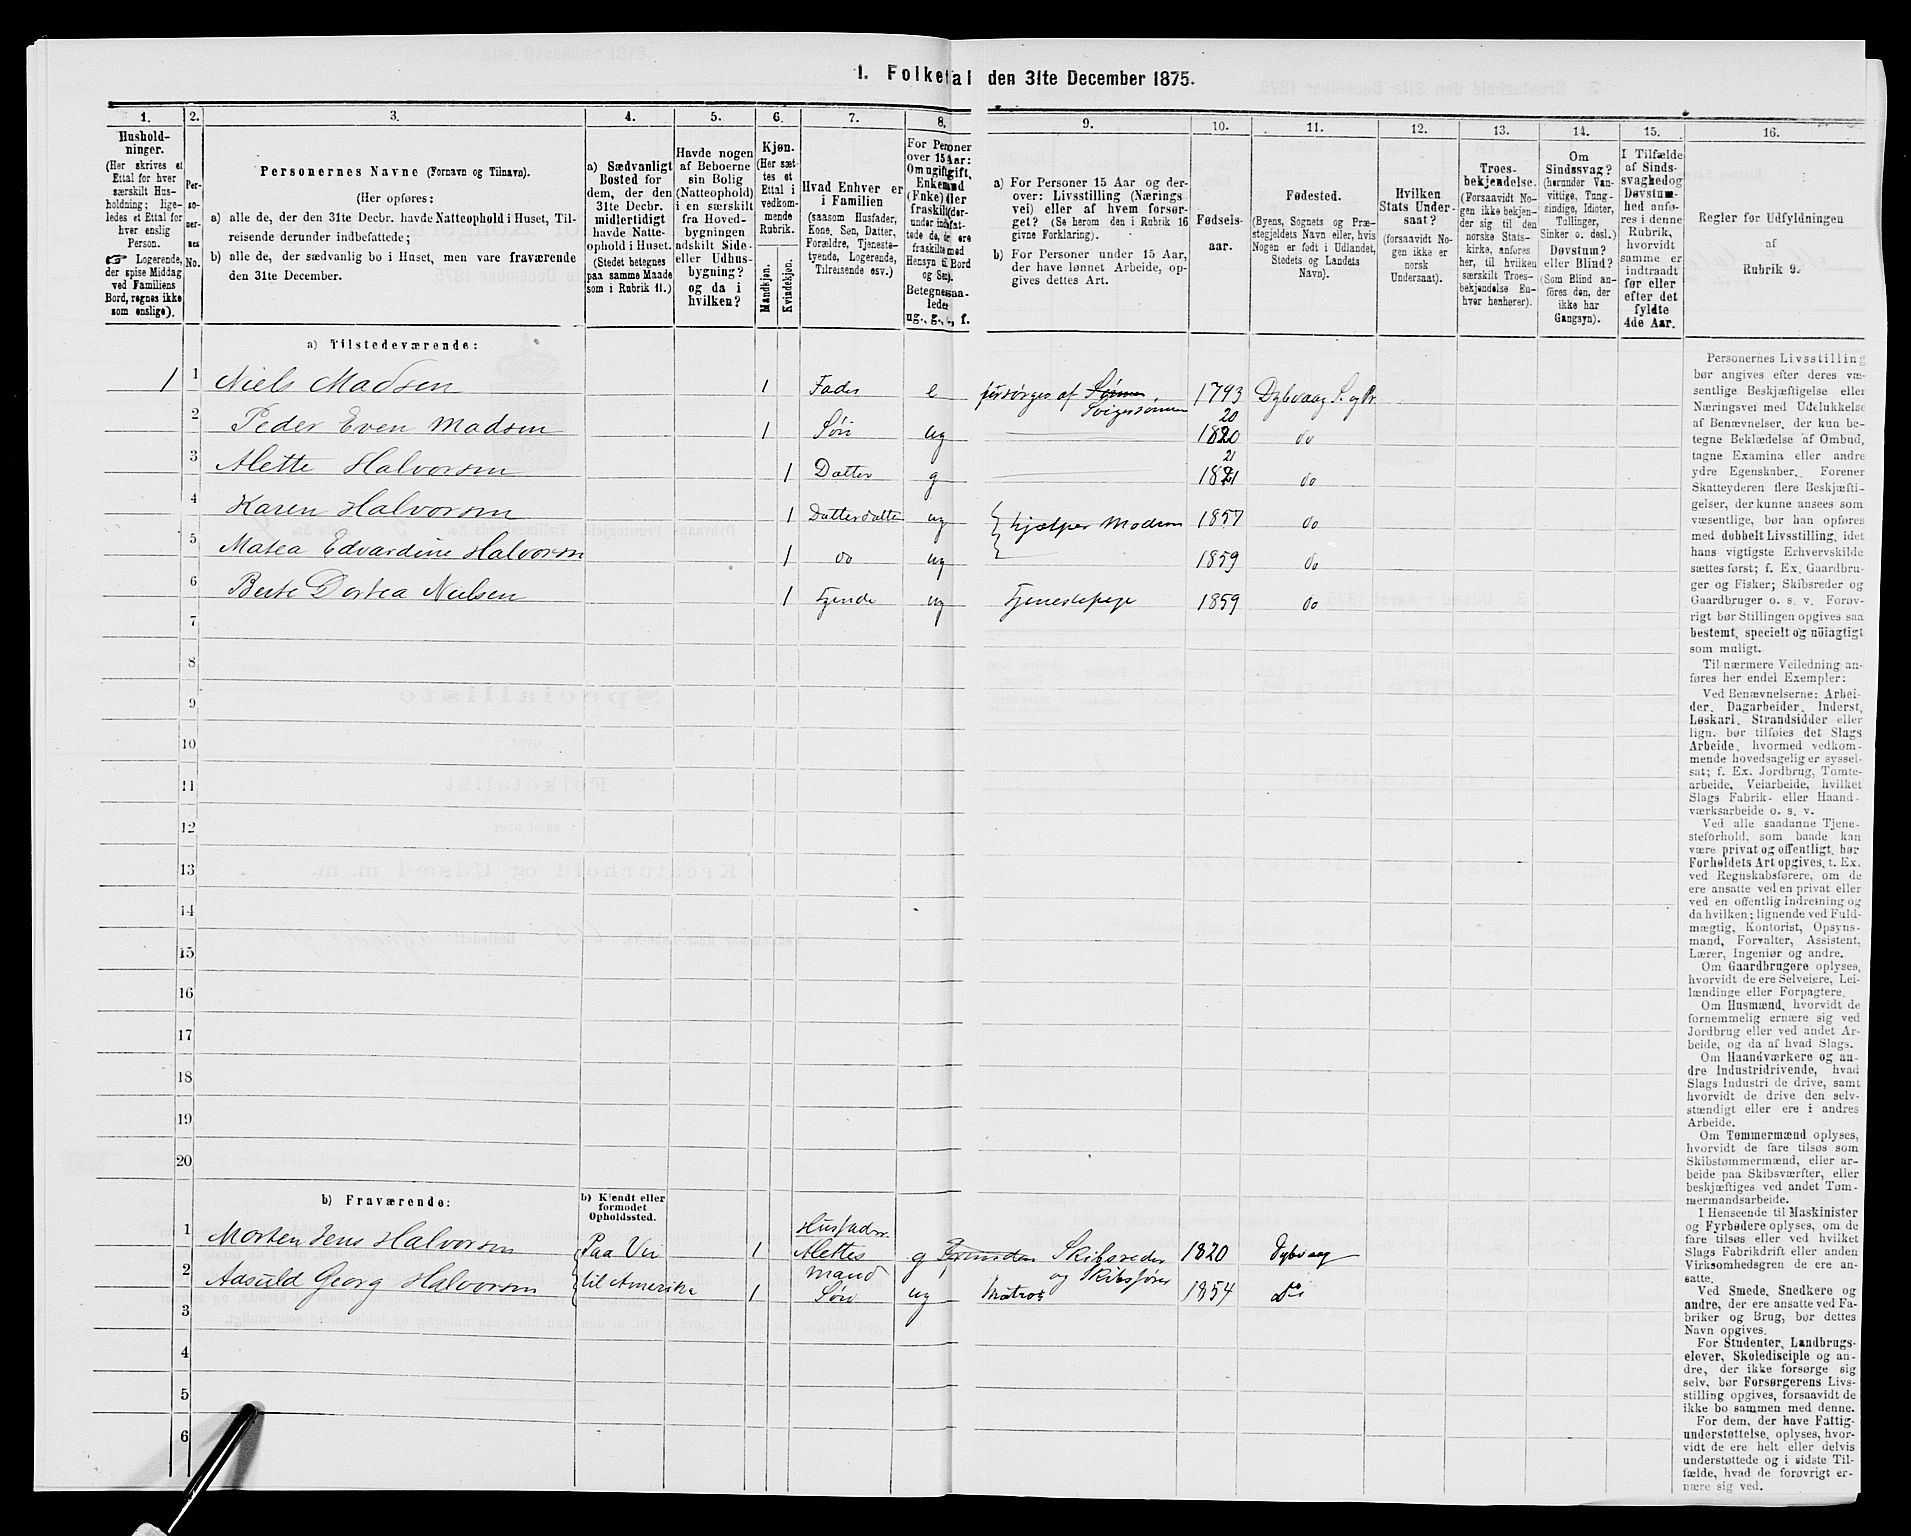 1. Folketal den 31te December 1875.
1. 2. 3. 4. 5. 6. 7. 8. 9. 10. 11. 12. 13. 14. 15. 16.
Hushold-
ninger.
(Her skrives et
Ettal for hver
særskilt Hus-
holdning; lige-
ledes et Ettal for
hver enslig
Person.
☞ Logerende,
der spise Middag
ved Familiens
Bord, regnes ikke
som enslige).
Per-
so-
ner-
nes
No.
Personernes Navne (Fornavn og Tilnavn).
(Her opføres:
a) alle de, der den 31te Decbr. havde Natteophold i Huset, Til-
reisende derunder indbefattede;
b) alle de, der sædvanlig bo i Huset, men vare fraværende
den 31te December.
a) Sædvanligt
Bosted for
dem, der den
31te Decbr.
midlertidigt
havde Natte-
ophold i Huset.
(Stedet betegnes
paa samme Maade
som i Rubrik 11.)
Havde nogen
af Beboerne
sin Bolig
(Natteophold)
i en særskilt
fra Hoved-
bygningen
adskilt Side-
eller Udhus-
bygning?
og da i
hvilken?
Kjøn.
(Her sæt-
tes et
Ettal i
vedkom-
mende
Rubrik.
Mandkjøn.
Kvindekjøn.
Hvad Enhver er
i Familien
(saasom Husfader,
Kone, Søn, Datter,
Forældre, Tjeneste-
tyende, Logerende,
Tilreisende osv.)
For Personer
over 15 Aar:
Om ugift, gift,
Enkemand
(Enke) eller
fraskilt
Betegnes saa-
ledes:
ug., g., e., f.
a) For Personer 15 Aar og der-
over: Livsstilling (Nærings-
vei) eller af hvem forsør-
get? (Se herom den i Rubrik 16
givne Forklaring).
b) For Personer under 15 Aar,
der have lønnet Arbeide, op-
gives dettes Art.
Fødsels-
aar.
Fødested.
(Byens, Sognets og Præ-
stegjeldets Navn eller, hvis
Nogen er født i Udlandet,
Stedets og Landets
Navn).
Hvilken
Stats Under-
saat?
(forsaavidt No-
gen ikke er
norsk
Undersaat).
Troes-
bekjendelse.
(Forsaavidt No-
gen ikke bekjen-
der sig til den
norske Stats-
kirke, anføres
her, til hvilken
særskilt Troes-
bekjendelse En-
hver henhører).
Om
Sindssvag?
(herunder Van-
vittige, Tung-
sindige, Idioter,
Tullinger,
Sinker o. desl.)
Døvstum?
eller Blind?
(Som Blind an-
føres den, der
ikke har
Gangsyn).
I Tilfælde
af Sinds-
svaghed og
Døvstum-
hed anfø-
res i denne
Rubrik,
hvorvidt
samme er
indtraadt
før eller
efter det
fyldte
4de Aar.
Regler for Udfyldningen
af
Rubrik 9.
a) Tilstedeværende:
1 1 Niels Madsen 1 Fader e forsørges af Sønnen Svigersønnen 1793 Dybvaag S. og Pr.
2 Peder Even Madsen 1 Søn ug 20 1820 do
3 Alette Halvorsen 1 Datter g 21 1821 do
4 Karen Halvorsen 1 Datterdatter ug hjælper Modren 1857 do
5 Matea Edvardine Halvorsen 1 do ug 1859 do
6 Berte Dortea Nielsen 1 Tjende ug Tjenestepige 1859 do
7
8
9
10
11
12
13
14
15
16
17
18
19
20
b) Fraværende:
b) Kjendt eller
formodet
Opholdssted.
1 Morten Jens Halvorsen Paa Vei 1 Husfader Alettes mand g Skibsreder og Skibsfører 1820 Dybvaag
2 Aasuld Georg Halvorsen til Amerika 1 Søn ug Matros 1854 do
3
4
5
6
Personernes Livsstilling
bør angives efter deres væ-
sentlige Beskjæftigelse eller
Næringsvei med Udelukkelse
af Benævnelser, der kun be-
tegne Beklædelse af Ombud,
tagne Examina eller andre
ydre Egenskaber. Forener
Skatteyderen flere Beskjæfti-
gelser, der kunne ansees som
væsentlige, bør han opføres
med dobbelt Livsstilling, idet
hans vigtigste Erhvervskilde
sættes først; f. Ex. Gaardbru-
ger og Fisker; Skibsreder og
Gaardbruger o. s. v. Forøv-
rigt bør Stillingen opgives saa
bestemt, specielt og nöiagtigt
som muligt.
Til nærmere Veiledning an-
føres her endel Exempler:
Ved Benævnelserne: Arbei-
der, Dagarbeider, Inderst,
Løskarl, Strandsidder eller
lign. bør tilføies det Slags
Arbeide, hvormed vedkom-
mende hovedsagelig er syssel-
sat; f. Ex. Jordbrug, Tomte-
arbeide, Veiarbeide, hvilket
Slags Fabrik- eller Haand-
værksarbeide o. s. v.
Ved alle saadanne Tjene-
steforhold, som baade kan
være privat og offentligt, bør
Forholdets Art opgives, t. Ex.
ved Regnskabsførere, om de
ere ansatte ved en privat eller
ved en offentlig Indretning og
da hvilken; lignende ved Fuld-
mægtig, Kontorist, Opsyns-
mand, Forvalter, Assistent,
Lærer, Ingeniør og andre.
Om Gaardbrugere oplyses,
hvorvidt de ere Selveiere, Lei-
lændinge eller Forpagtere.
Om Husmænd, hvorvidt de
fornemmelig ernære sig ved
Jordbrug eller ved andet Ar-
beide, og da af hvad Slags.
Om Haandværkere og an-
dre Industridrivende, hvad
Slags Industri de drive, samt
hvorvidt de drive den selv-
stændigt eller ere i andres
Arbeide.
Om Tømmermænd oplyses,
hvorvidt de fare tilsøs som
Skibstømmermænd, eller ar-
beide paa Skibsværfter, eller
beskjæftiges ved andet Tøm-
mermandsarbeide.
I Henseende til Maskinister
og Fyrbødere oplyses, om de
fare tilsøs eller ved hvilket
Slags Fabrikdrift eller anden
Virksomhedsgren de ere an-
satte.
Ved Smede, Snedkere og
andre, der ere ansatte ved Fa-
briker og Brug, bør dettes
Navn opgives.
For Studenter, Landbrugs-
elever, Skoledisciple og an-
dre, der ikke forsørge sig
selv, bør Forsørgerens Livs-
stilling opgives, forsaavidt de
ikke bo sammen med denne.
For dem, der have Fattig-
understøttelse, oplyses, hvor-
vidt de ere helt eller delvis
understøttede og i sidste Til-
fælde, hvad de forøvrigt er-
nære sig ved.